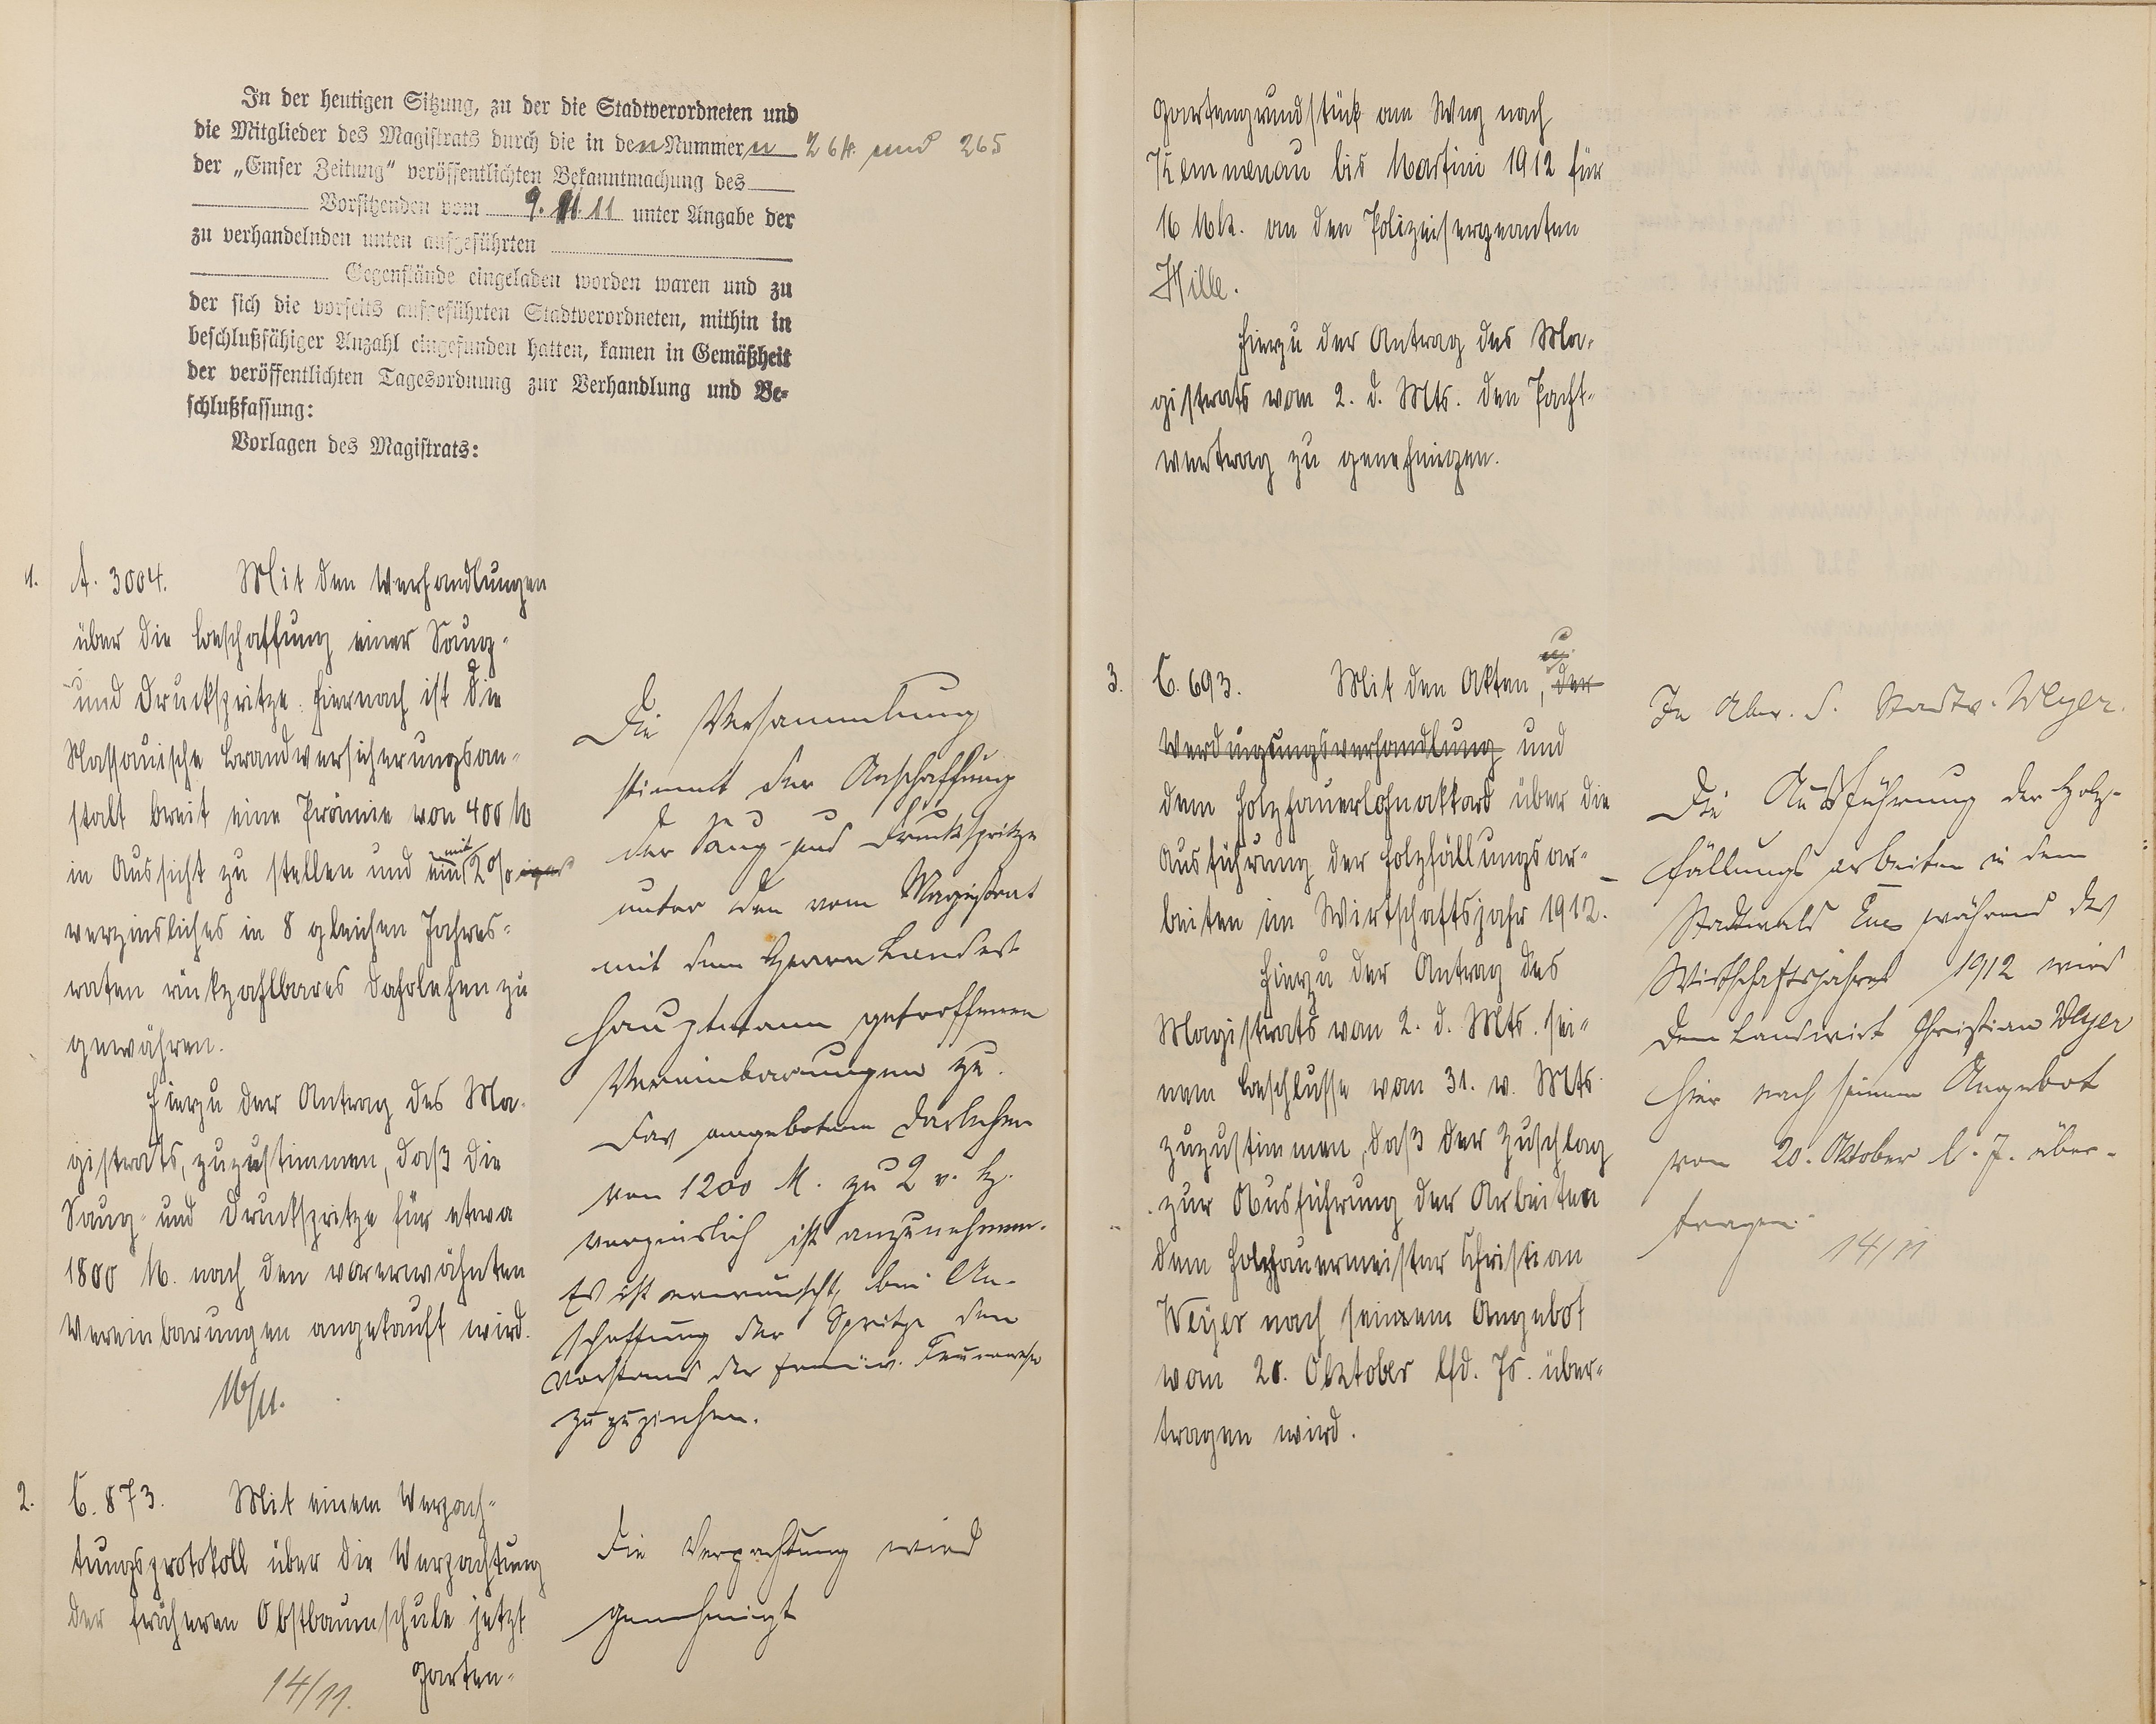 In der heutigen Sitzung, zu der die Stadtverordneten und
die Mitglieder des Magistrats durch die in den Nummern 264 und 265
der „Emser Zeitung“ veröffentlichten Bekanntmachung des
Vorsitzenden vom 9.11.11 unter Angabe der
zu verhandelnden unten aufgeführten
Gegenstände eingeladen worden waren und zu
der sich die vorseits aufgeführten Stadtverordneten, mithin in
beschlußfähiger Anzahl eingefunden hatten, kamen in Gemäßheit
der veröffentlichten Tagesordnung zur Verhandlung und Be-
schlußfassung:
Vorlagen des Magistrats:
1. A. 3004. Mit den Verhandlungen
über die Beschaffung einer Saug-
und Druckspritze. Hiernach ist die
Nassauische Brandversicherungsan-
stalt bereit eine Prämie von 400 M
in Aussicht zu stellen und ein mit 2%
verzinsliches in 8 gleichen Jahres-
raten rückzahlbares Dahrlehen zu
gewähren.
Hierzu der Antrag des Ma-
gistrats, zuzustimmen, daß die
Saug- und Druckspritze für etwa
1800 M. nach den vorerwähnten
Vereinbarungen angekauft wird.
16/11.
Die Versammlung
stimmt der Anschaffung
der Saug- und Druckspritze
unter den vom Magistrat
mit dem Herrn Landes-
hauptmann getroffenen
Vereinbarungen zu.
Das angebotene Darlehen
von 1200 M. zu 2 v. H.
verzinslich ist anzunehmen.
Es ist erwünscht, bei An-
schaffung der Spritze den
Vorstand der freiw. Feuerwehr
zuzuziehen.
2. C. 873. Mit einem Verpach-
tungsprotokoll über die Verpachtung
der früheren Obstbaumschule jetzt
Garten-
14/11.
Die Verpachtung wird
genehmigt
Gartengrundstück am Weg nach
Kemmenau bis Martini 1912 für
16 Mk. an den Polizeisergeanten
Hille.
Hierzu der Antrag des Ma-
gistrats vom 2. d. Mts. den Pacht-
vertrag zu genehmigen.
3. C. 693. Mit den Akten, der
Verdingungsverhandlung und
dem Holzhauerlohnakkord über die
Ausführung der Holzfällungsar-
beiten im Wirtschaftsjahr 1912.
Hierzu der Antrag des
Magistrats von 2. d. Mts. sei-
nem Beschlusse vom 31. v. Mts.
zuzustimmen, daß der Zuschlag
zur Ausführung der Arbeiten
dem Holzhauermeister Christian
Weyer nach seinem Angebot
vom 20. Oktober lfd. Js. über-
tragen wird.
In Abw. d. Stadtv. Weyer.
Die Ausführung der Holz-
fällungsarbeiten in dem
Stadtwald Ems während des
Wirtschaftsjahres 1912 wird
dem Landwirt Christian Weyer
hier nach seinem Angebot
von 20. Oktober l. J. über-
tragen.
14/11